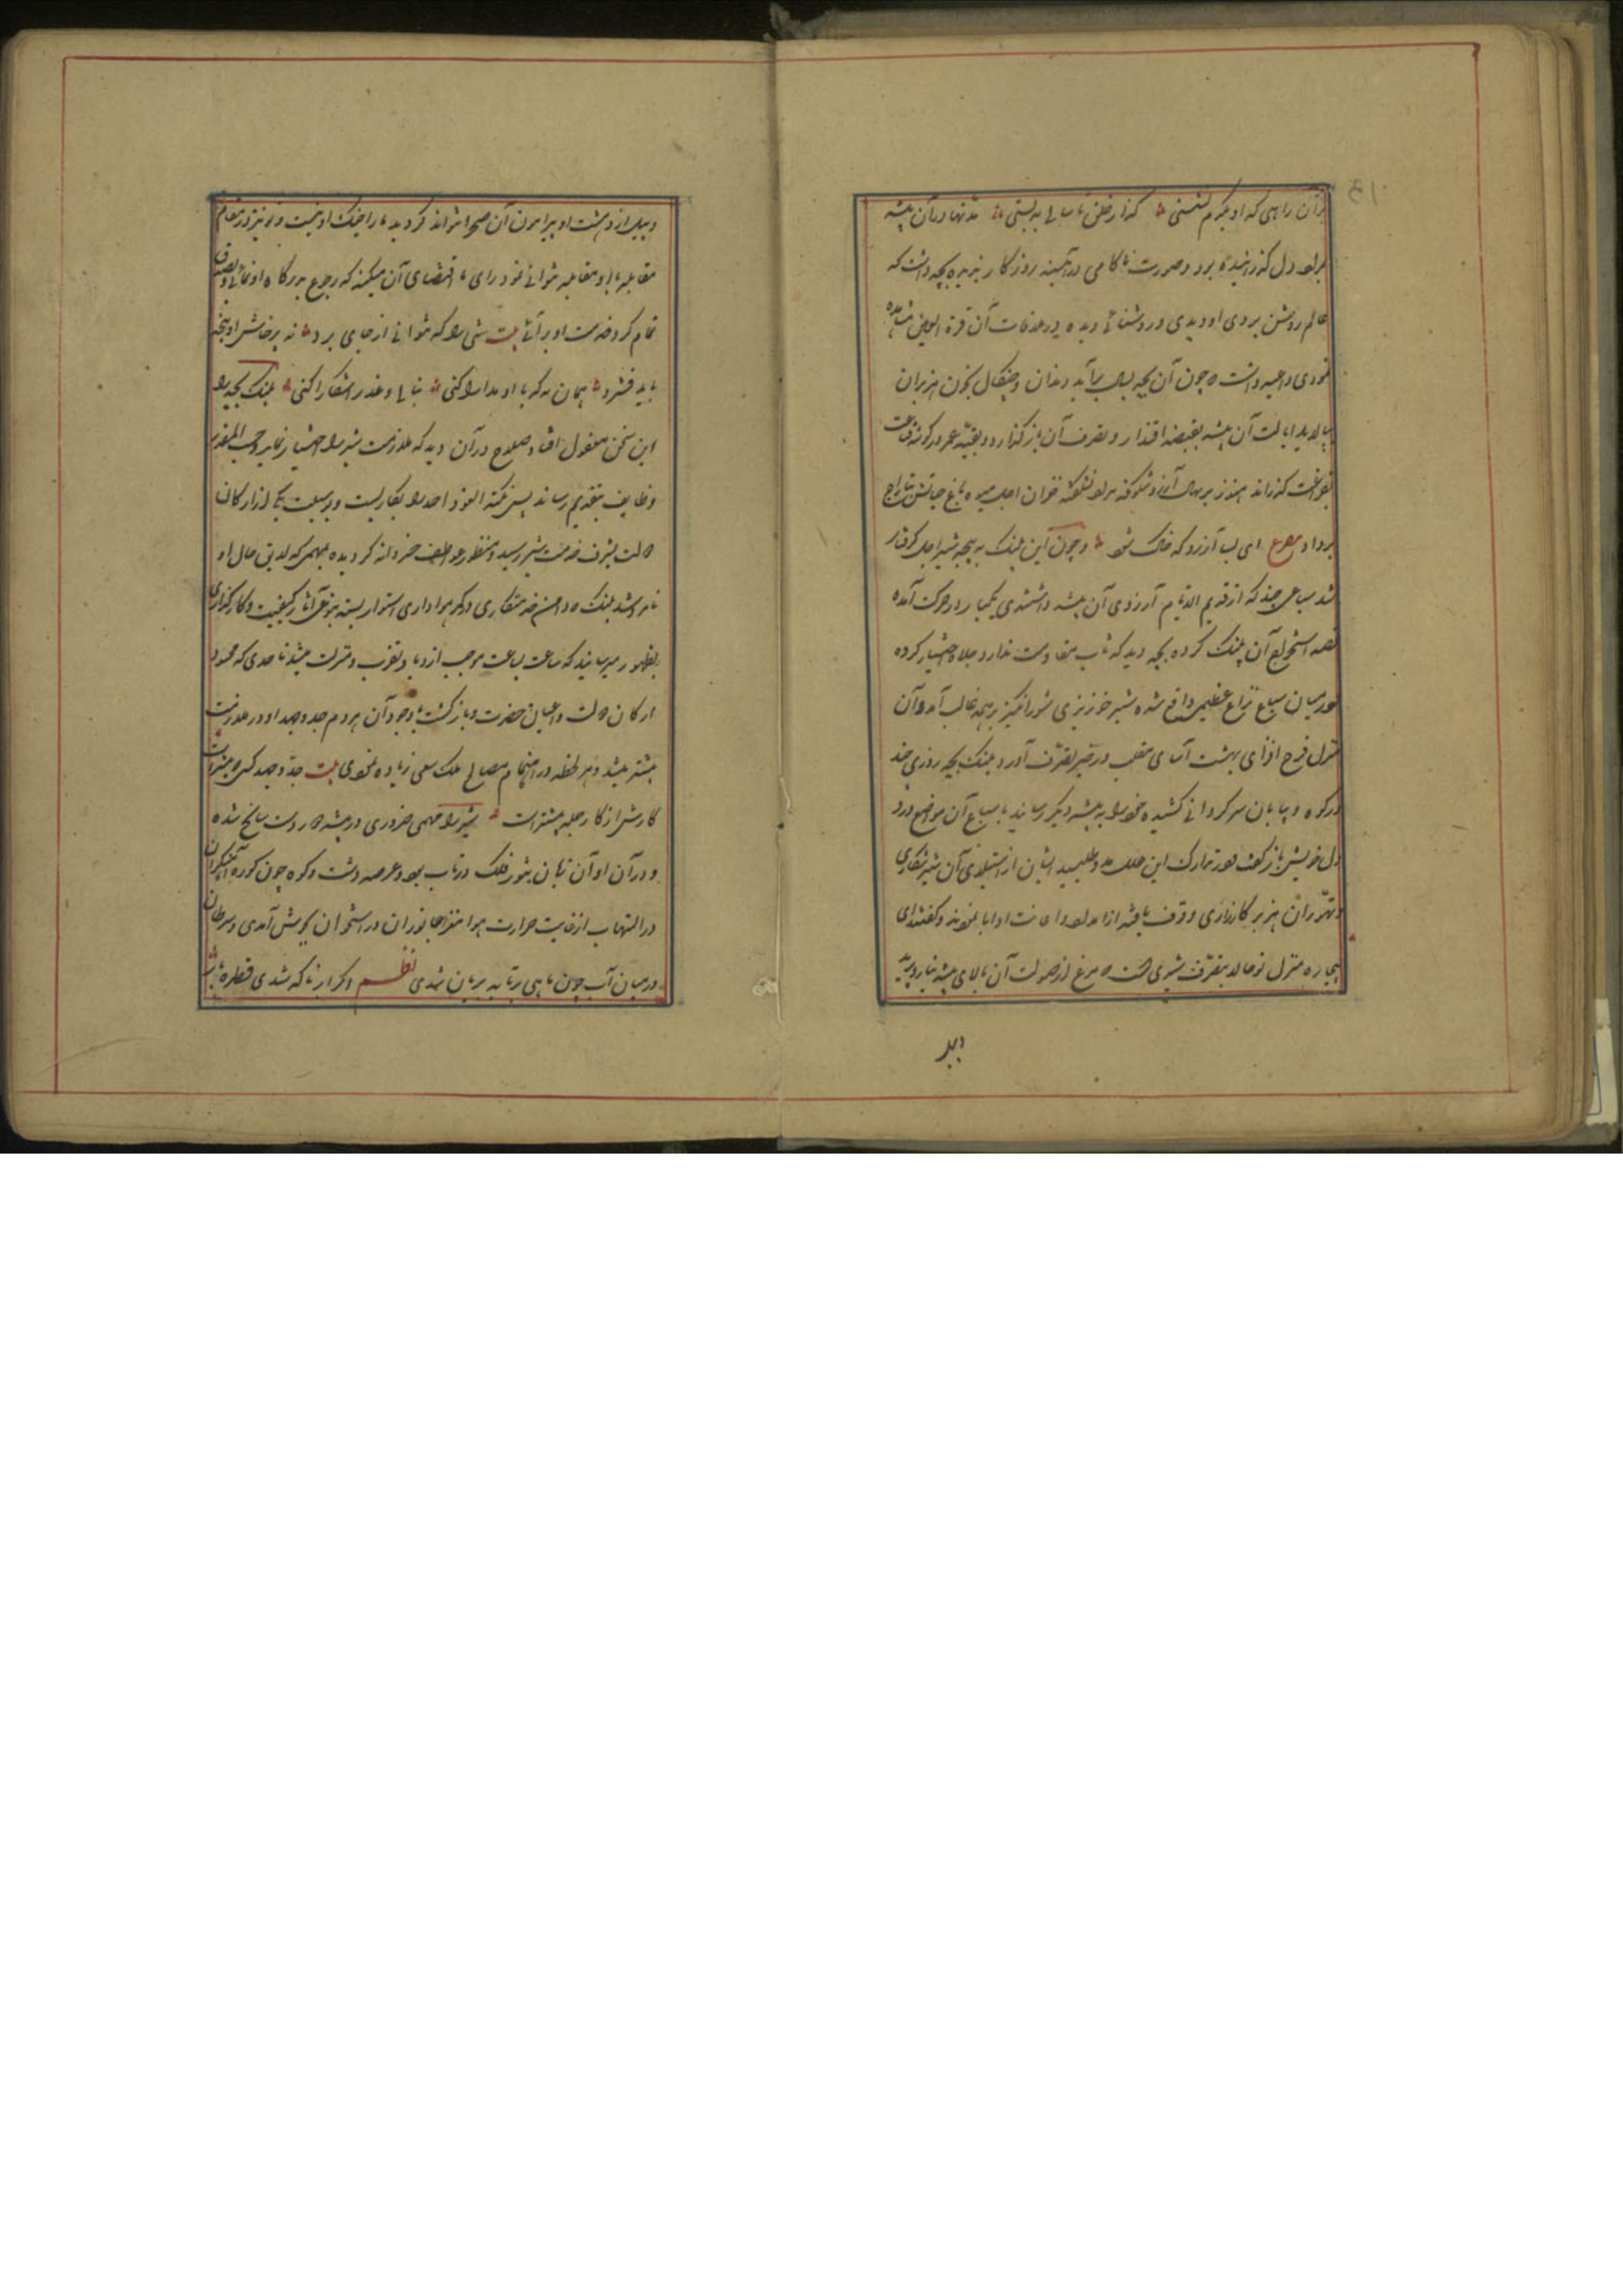 بر آن راهی که او یکدم نشستی گذار خلق تا سالی به بستی مدتها در آن بیشه
بمراد دل گذرانیده بود و صورت ناکامی در آئینه روزگار ندیده بچه داشت که
عالم روشن بروی او دیدی و روشنائی دیده در ملاقات آن قرة العین مشاهده
نمودی داعیه داشت چون آن بچه بسال برآید و دندان و چنگال بخون هزبران
بیالاید ایالت آن بیشه بقبضه اقتدار و تصرف آن بازگذارد و بقیه عمر در گوشه قناعت
بفراغت گذراند هنوز بر نهال آرزو شکوفه مراد نشکفته خزان اجل میوه باغ حیاتش بتاراج
برداد مصرع ای بسا آرزو که خاک شد و چون این پلنگ به پنجه شیر اجل گرفتار
شد سباعی چند که از قدیم الایام آرزوی آن بیشه داشتندی یکبار در حرکت آمده
قصد استخلاع آن پلنگ کرده بچه دید که تاب مقاومت ندارد جلا اختیار کرده
و در میان سباع نزاع عظیم واقع شده شیر خونریزی شورانگیز بر همه غالب آمده آن
منزل فرح افزای بهشت آسای در حیز تصرف آورد پلنگ بچه روزی چند
در کوه و بیابان سرگردانی کشیده خود را به بیشه دیگر رسانید با سباع آن مواضع درد
دل خویش بازگفت و در تدارک این خلل مدد طلبید ایشان از استیلای آن شیر شکاری
و تهوران هزبر کارزاری وقوف یافته از امداد و اعانت او ابا نمودند و گفتند ای
بیچاره منزل تو حالا بتصرف شیری است که مرغ از صولت آن بالای بیشه نیارد پرید
و پیل از دهشت او پیرامون آن صحرا نتواند گردید ما را جنگ او نیست و تو نیز در مقام
مقابله با او مقابله نتوانی نمود رای ما اقتضای آن میکند که رجوع بدرگاه او نمائی و بصدق
تمام گرد خدمت او برآئی بیت کسی را که نتوانی از جای برد نه پرخاش او پنجه
باید فشرد همان به که با او مدارا کنی بنالی و عذر آشکارا کنی پلنگ بچه را
این سخن معقول افتاد و صلاح در آن دید که ملازمت شیر را اختیار نماید و حسب المقدور
وظایف بتقدیم رساند پس نکته العود احمد را بکار بست و بوسیلت یکی از ارکان
دولت بشرف خدمت شیر رسید و منظور عواطف خسروانه گردیده بمهمی که لایق حال او
نامزد شد پلنگ دامن خدمتکاری و کمر هواداری استوار بسته بنوعی آثار کیفیت و کارگزاری
بظهور میرسانید که ساعت بساعت موجب ازدیاد تقرب و منزلت میشد تا حدی که محسود
ارکان دولت و اعیان حضرت و بازگشت با وجود آن هر دم جد و جهد او در ملازمت
بیشتر میشد و هر لحظه در اهتمام مصالح ملک سعی زیاده نمودی بیت جد و جهد کسی که بیشتر است
کارش از کار جمله پیشتر است شیر را مهمی ضروری در بیشه دوردست سانح شده
و در آن اوان تابان تنور فلک در تاب بود و عرصه دشت و کوه چون کوره آهنگران
در التهاب از غایت حرارت هوا مغز جانوران در استخوان بجوش آمدی و سرطان
در میان آب چون ماهی بر تابه بریان شدی نظم اگر از ناگه شدی قطره باران
و پیل